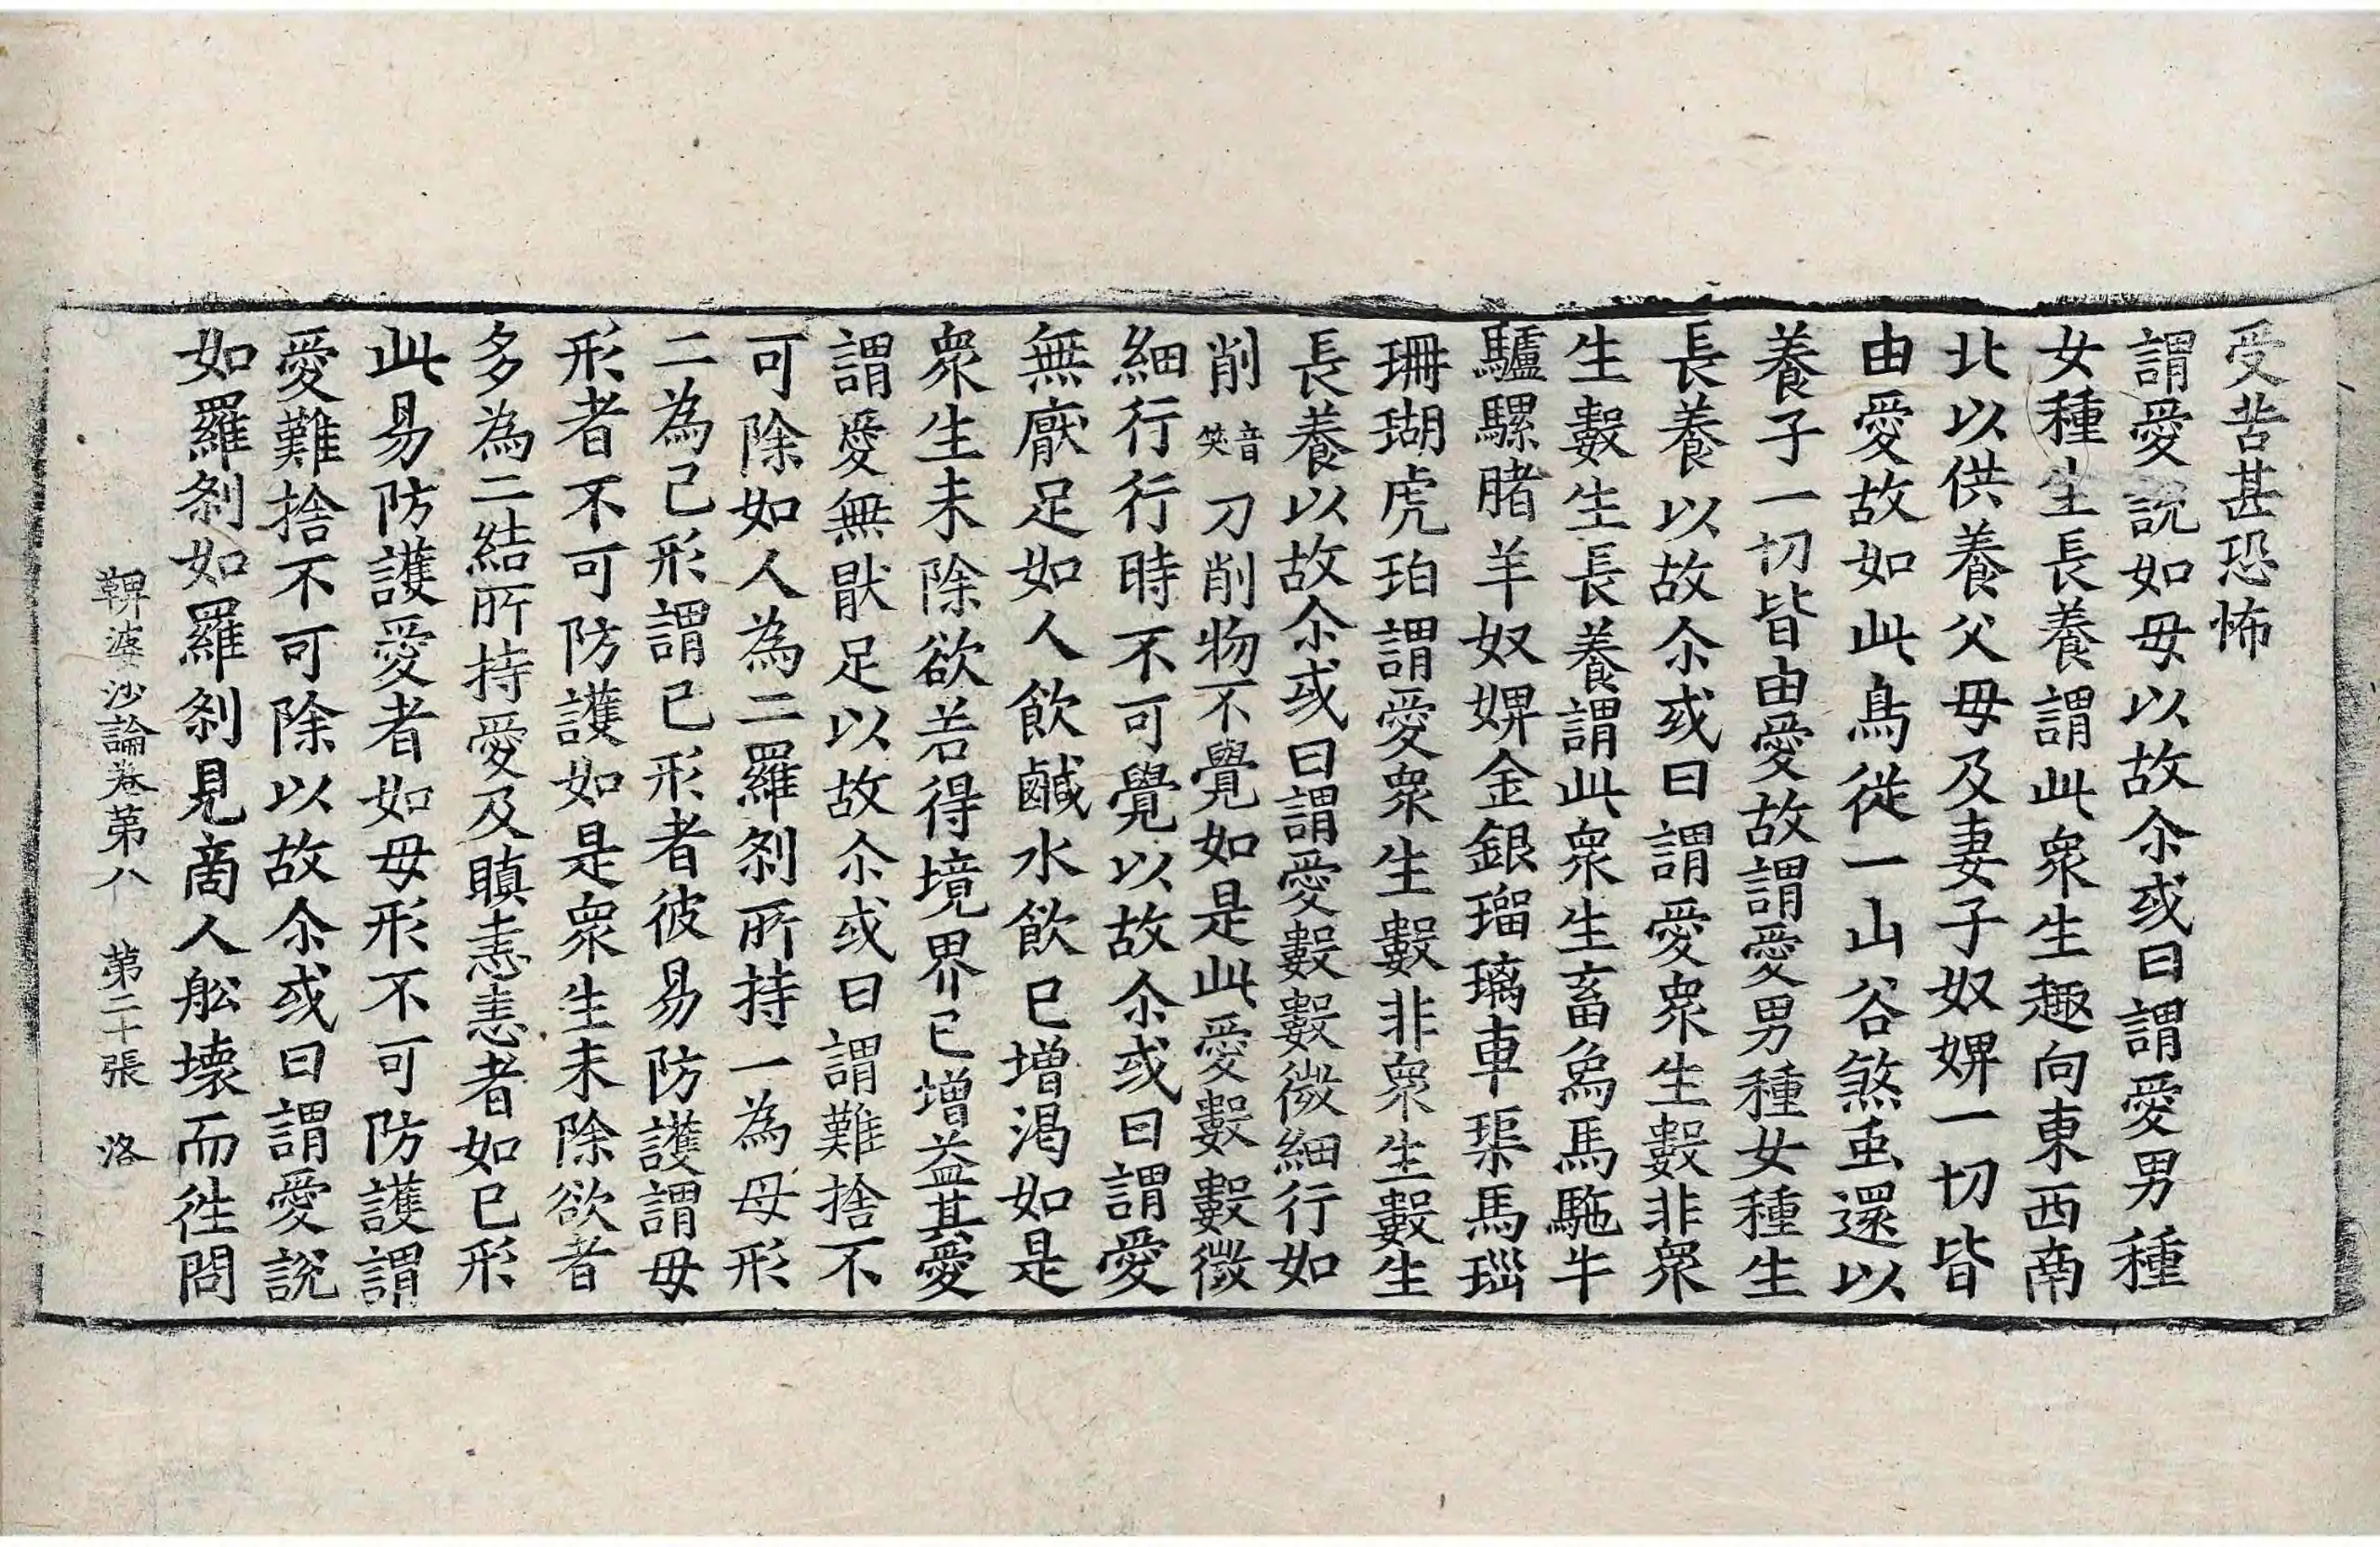 受苦甚恐怖
謂愛說如母以故尒或曰謂愛男種
女種生長養謂此衆生趣向東西南
北以供養父母及妻子奴婢一切皆
由愛故如此鳥從一山谷煞䖝還以
養子一切皆由愛故謂愛男種女種生
長養以故尒或曰謂愛衆生數非衆
生數生長養謂此衆生畜象馬駞牛
驢騾賭羊奴婢金銀瑠璃車璖馬瑙
珊瑚虎珀謂愛衆生數非衆生數生
長養以故尒或曰謂愛數數微細行如
削音笑刀削物不覺如是此愛數數微
細行行時不可覺以故尒或曰謂愛
無厭足如人飲鹹水飲已增渴如是
衆生未除欲若得境界已增益其愛
謂愛無猒足以故尒或曰謂難捨不
可除如人為二羅剎所持一為母形
二為己形謂己形者彼易防護謂母
形者不可防護如是衆生未除欲者
多為二結所持愛及瞋恚恚者如己形
此易防護愛者如母形不可防護謂
愛難捨不可除以故尒或曰謂愛說
如羅剎如羅剎見啇人舩壞而徃問
鞞婆沙論卷第八 第二十張 洛